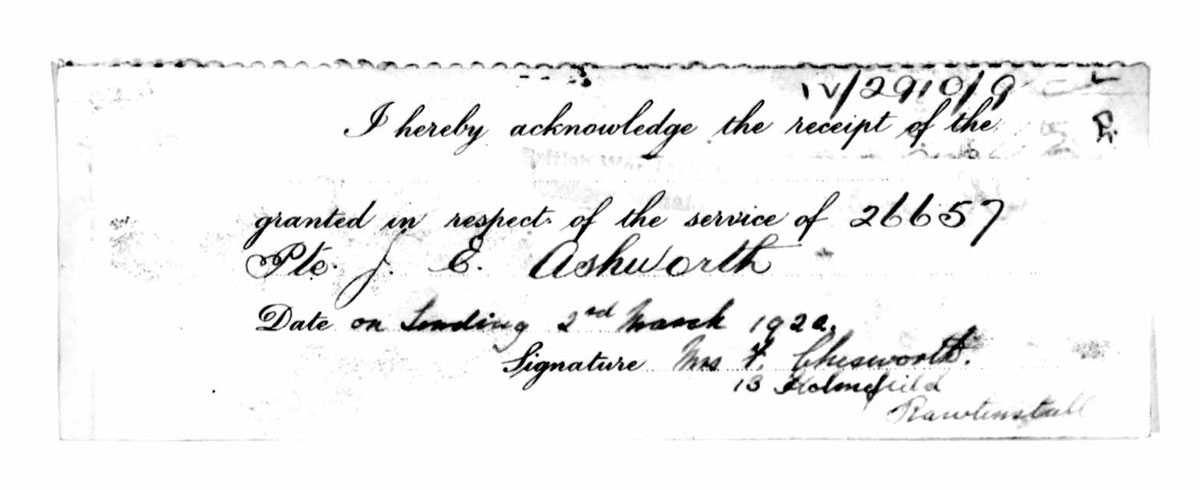 IV/2910/9
I hereby acknowledge the receipt of the
British War
granted in respect of the service of 26657
Pte. J. E. Ashworth
Date on Sending 2nd March 1922.
Signature Mrs F. Chesworth.
13 Holmefield
Rawtenstall